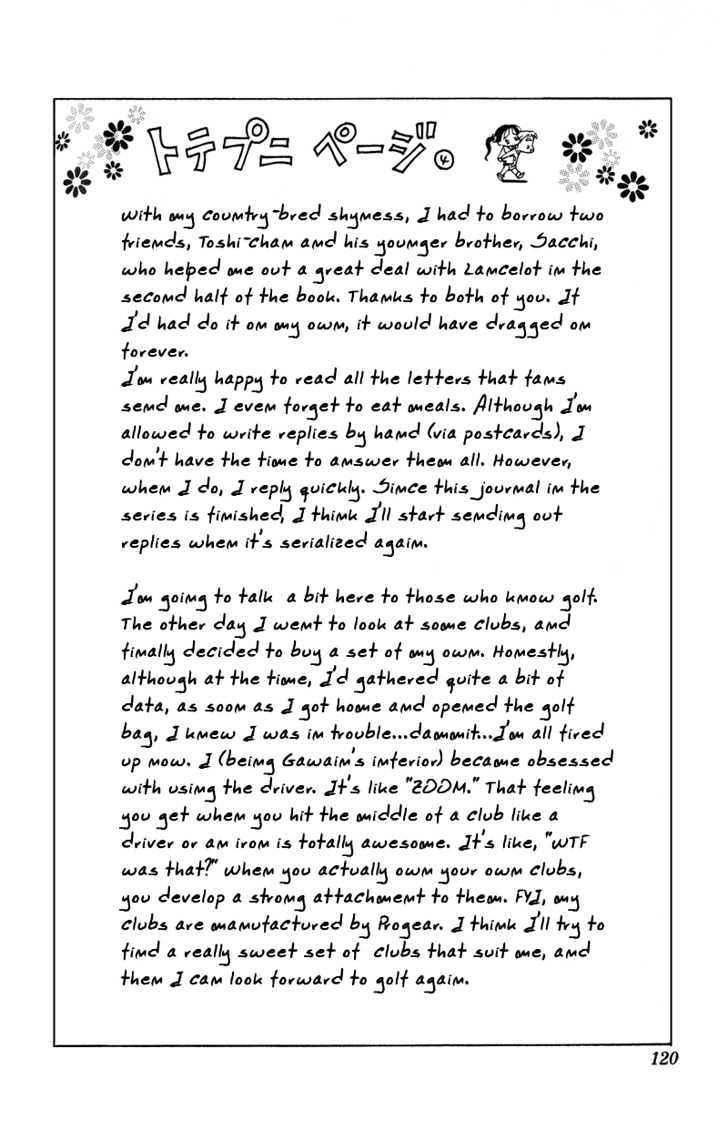 トテプニ ページ。④
with my country-bred shyness, I had to borrow two
friends, Toshi-chan and his younger brother, Sacchi,
who helped me out a great deal with Lancelot in the
second half of the book. Thanks to both of you. If
I'd had do it on my own, it would have dragged on
forever.
I'm really happy to read all the letters that fans
send me. I even forget to eat meals. Although I'm
allowed to write replies by hand (via postcards), I
don't have the time to answer them all. However,
when I do, I reply quickly. Since this journal in the
series is finished, I think I'll start sending out
replies when it's serialized again.
I'm going to talk a bit here to those who know golf.
The other day I went to look at some clubs, and
finally decided to buy a set of my own. Honestly,
although at the time, I'd gathered quite a bit of
data, as soon as I got home and opened the golf
bag, I knew I was in trouble...dammit...I'm all fired
up now. I (being Gawain's inferior) became obsessed
with using the driver. It's like "ZOOM." That feeling
you get when you hit the middle of a club like a
driver or an iron is totally awesome. It's like, "WTF
was that?" When you actually own your own clubs,
you develop a strong attachment to them. FYI, my
clubs are manufactured by Progear. I think I'll try to
find a really sweet set of clubs that suit me, and
then I can look forward to golf again.
120